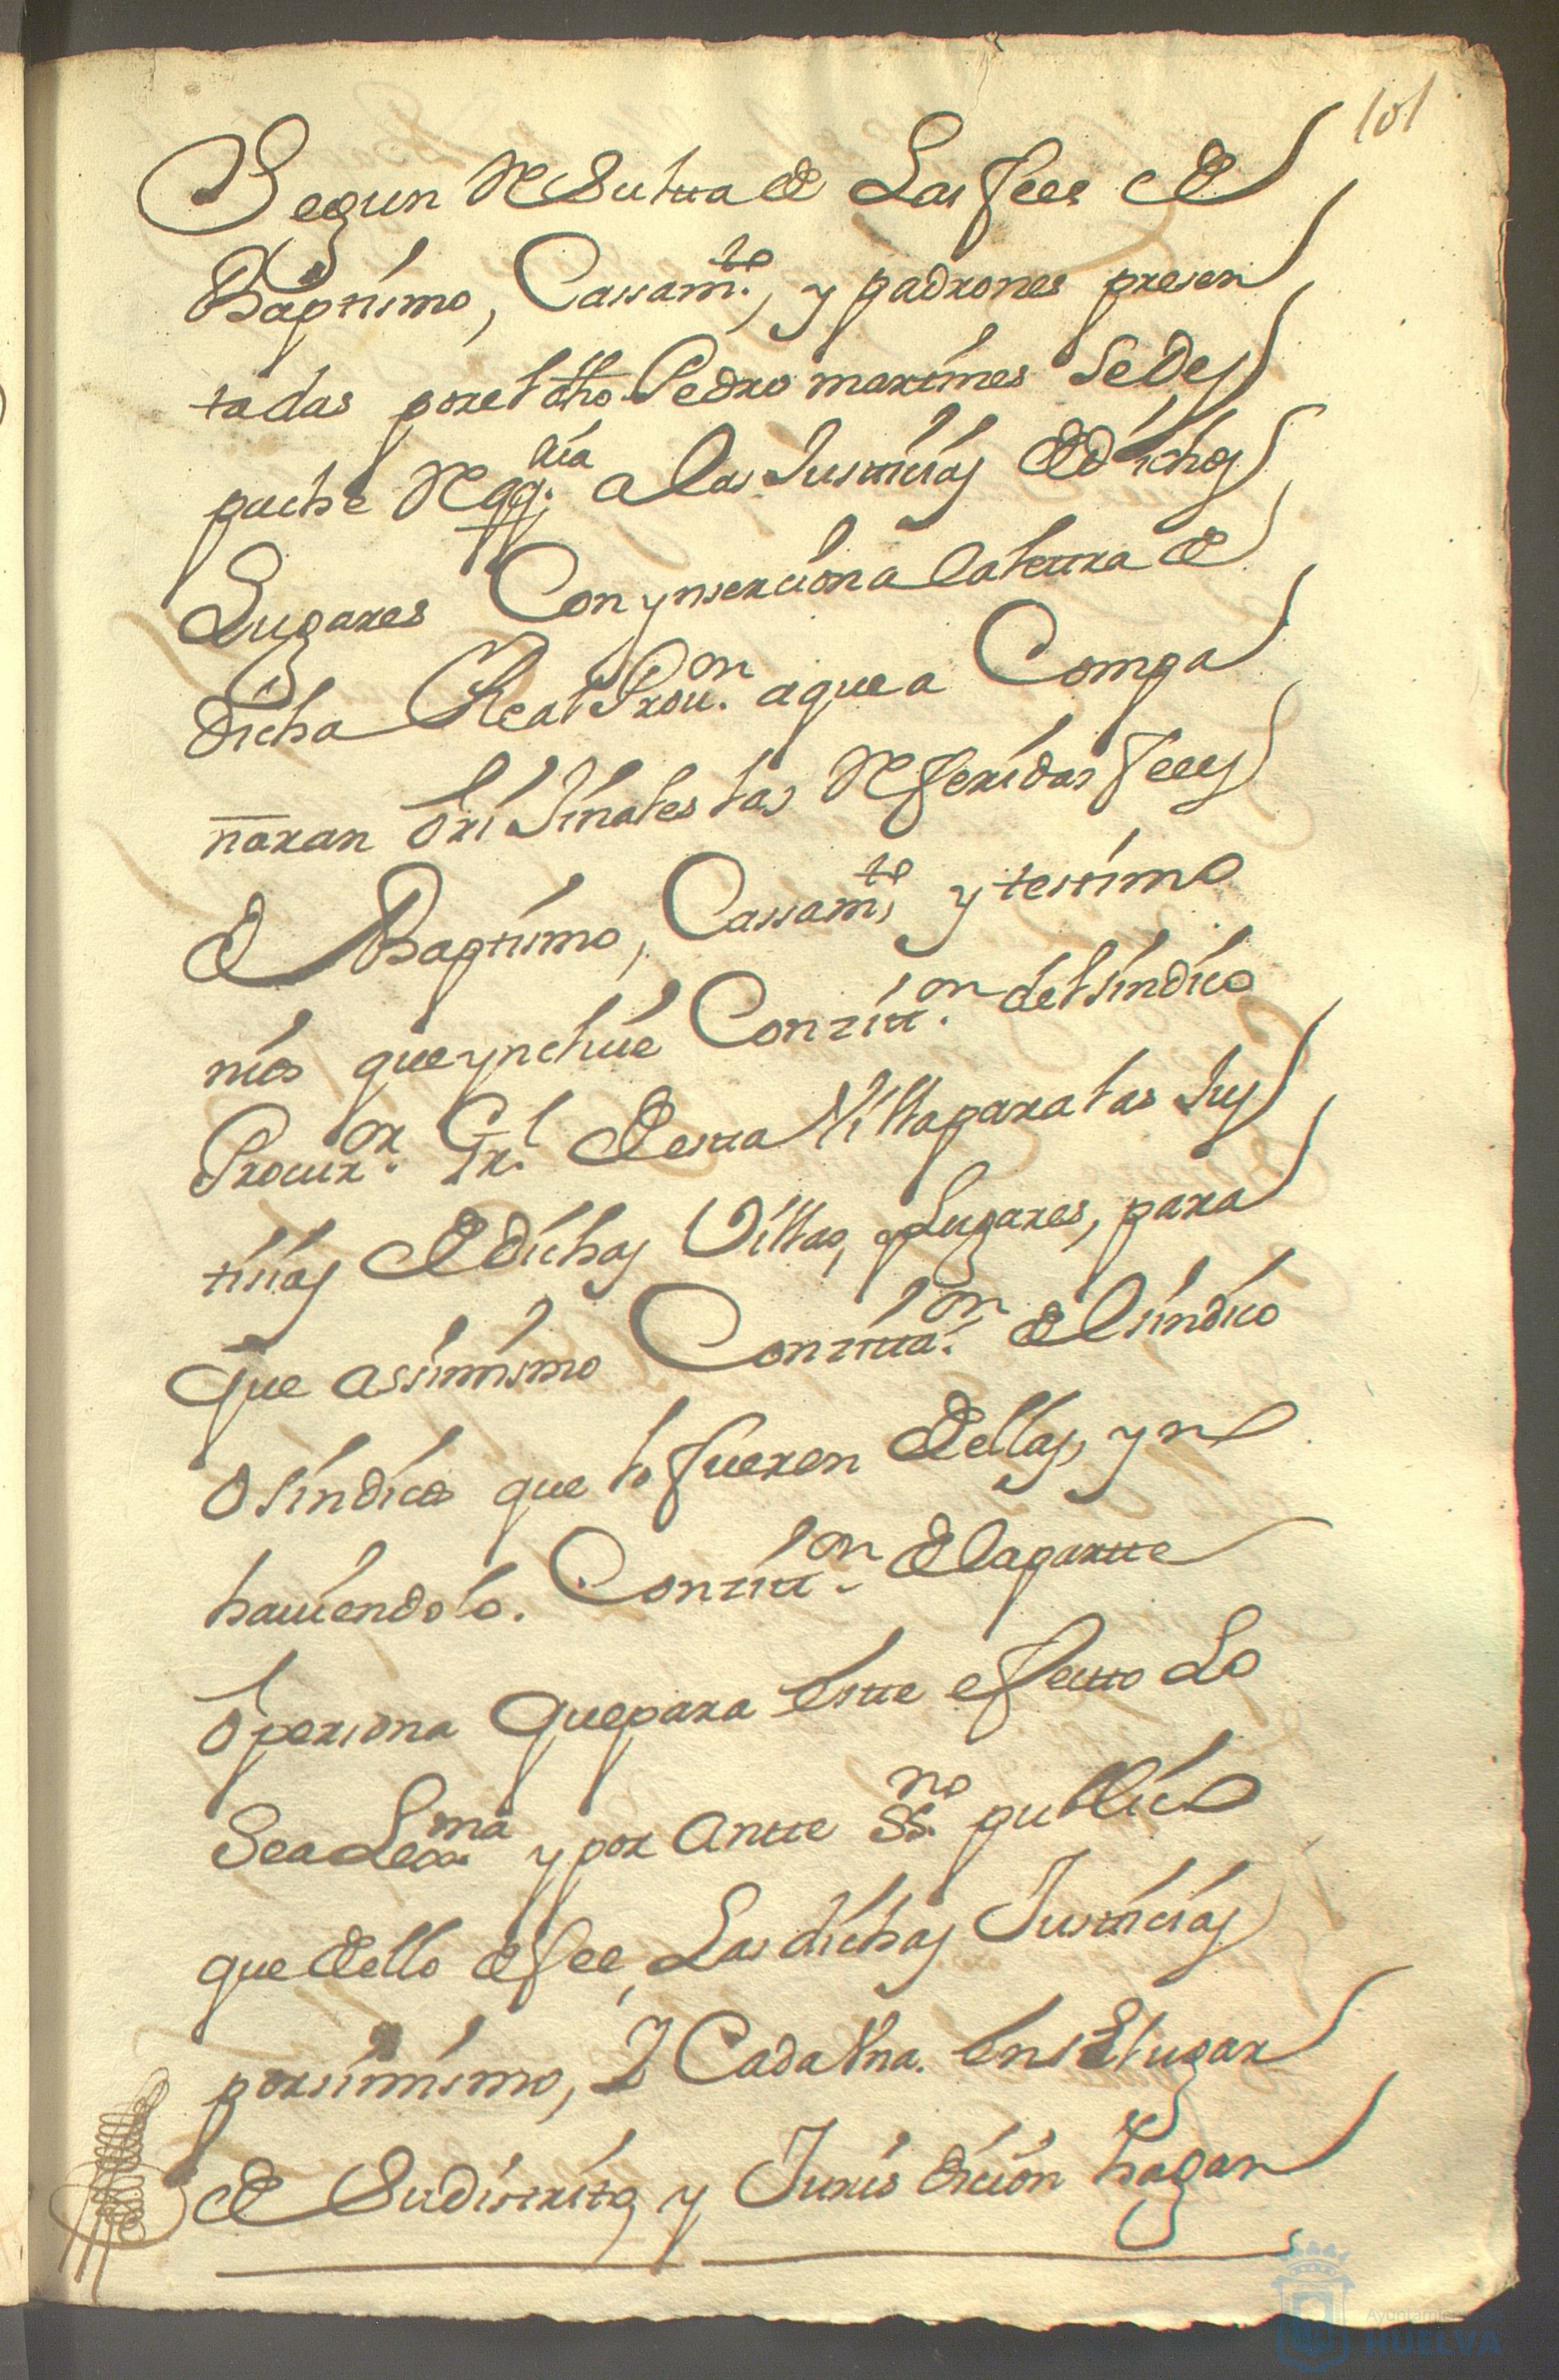 101
Segun ReSulta de Las fees de
Baptismo, Cassam.to, y padrones presen
tadas por el dho Pedro martines Se Des
pache Reqq.ria a las Justicias de dichos
Lugares Con ynsercion a la letra de
dicha Real Prou.on a que a Compa
ñaran OriJinales las Referidas fees
de Baptismo, Cassam.to, y testimo
nios que ynclúie Con zitt.on del sindico
Procur.or Gr.l de esta Villa para las Jus
ticias de dichas Villas, y Lugares, para
Que assimismo Con zitta.on del sindico
O sindicos que lo fueren de ellas, y no
hauiendolo. Con zitt.on de la partte
O persona Que para estte efectto Lo
Sea Lexx.ma y por Antte SS.no publico
que de ello de fee, Las dichas Justicias
por si mismo, Y Cada Vna. en sEl lugar
de Su distrito, y Juris dicion hagan
Ayuntamiento de
HUELVA